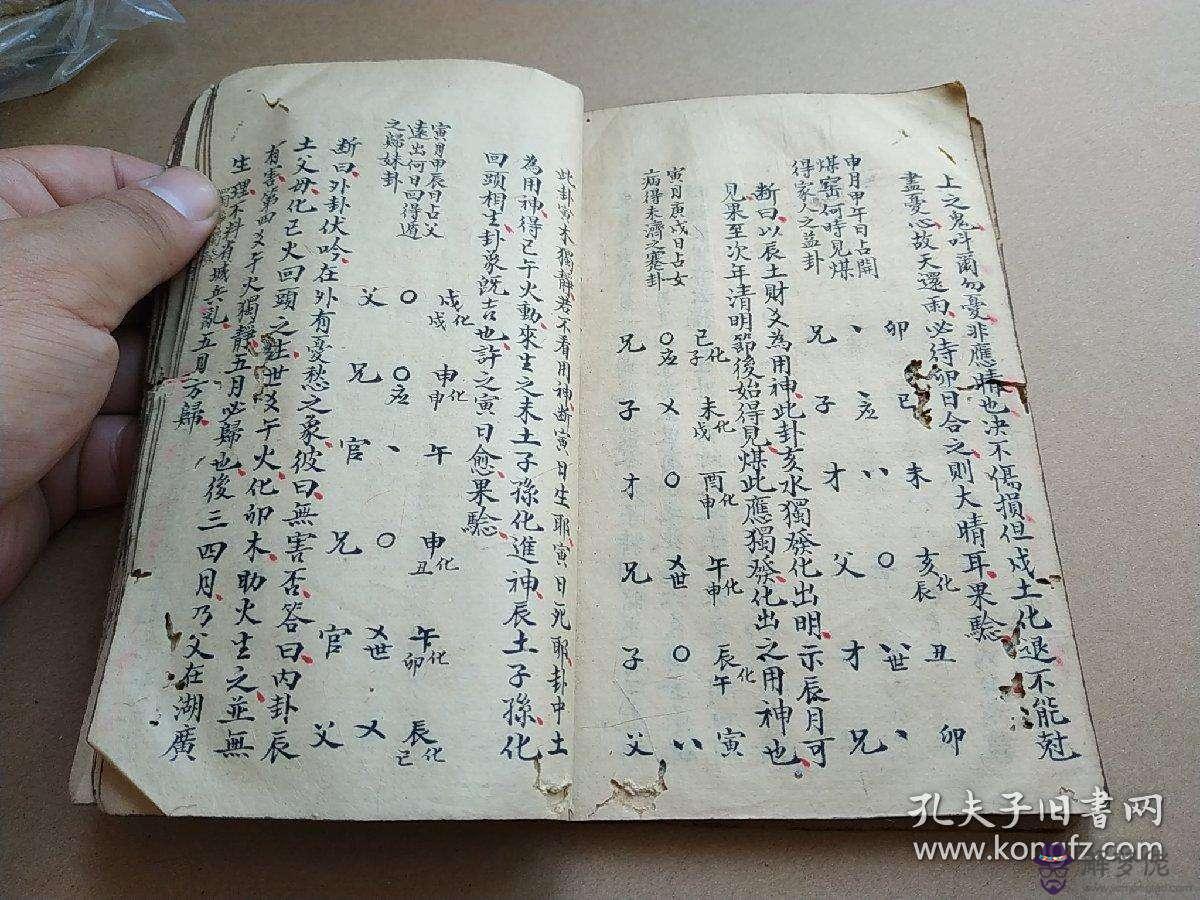 上之鬼呼爾勿憂非應晴也決不傷損但戌土化退不能尅
盡憂心故天還雨必待卯日合之則大晴耳果驗
申月甲午日占開
煤窑何時見煤
得家人之益卦
卯 巳 未 亥化辰 丑 卯
丶 丶应 〃 〇 〃世 丶
兄 子 才 父 才 兄
斷曰以辰土財爻為用神此卦亥水獨發化出明示辰月可
見果至次年清明節後始得見煤此應獨發化出之用神也
寅月庚戌日占女
病得未濟之蹇卦
巳化子 未化戌 酉化申 午化申 辰化午 寅
〇应 乂 〇 乂世 〇 〃
兄 子 才 兄 子 父
此卦寅木獨靜若不看用神断寅日生耶寅日死耶卦中土
為用神得巳午火動來生之未土子孫化進神辰土子孫化
回頭相生卦象既吉也許之寅日愈果驗
寅月甲辰日占父
遠出何日回得遁
之歸妹卦
戌化戌 申化申 午 申化丑 午化卯 辰化巳
〇 〇应 丶 〇 乂世 乂
父 兄 官 兄 官 父
断曰外卦伏吟在外有憂愁之象彼曰無害否答曰内卦辰
土父母化巳火回頭之生世爻午火化卯木助火生之並無
有害第四爻午火獨靜五月必歸也後三四月乃父在湖廣
生理不料有城兵亂五月方歸
孔夫子旧书网
www.kongfz.com
解梦佬